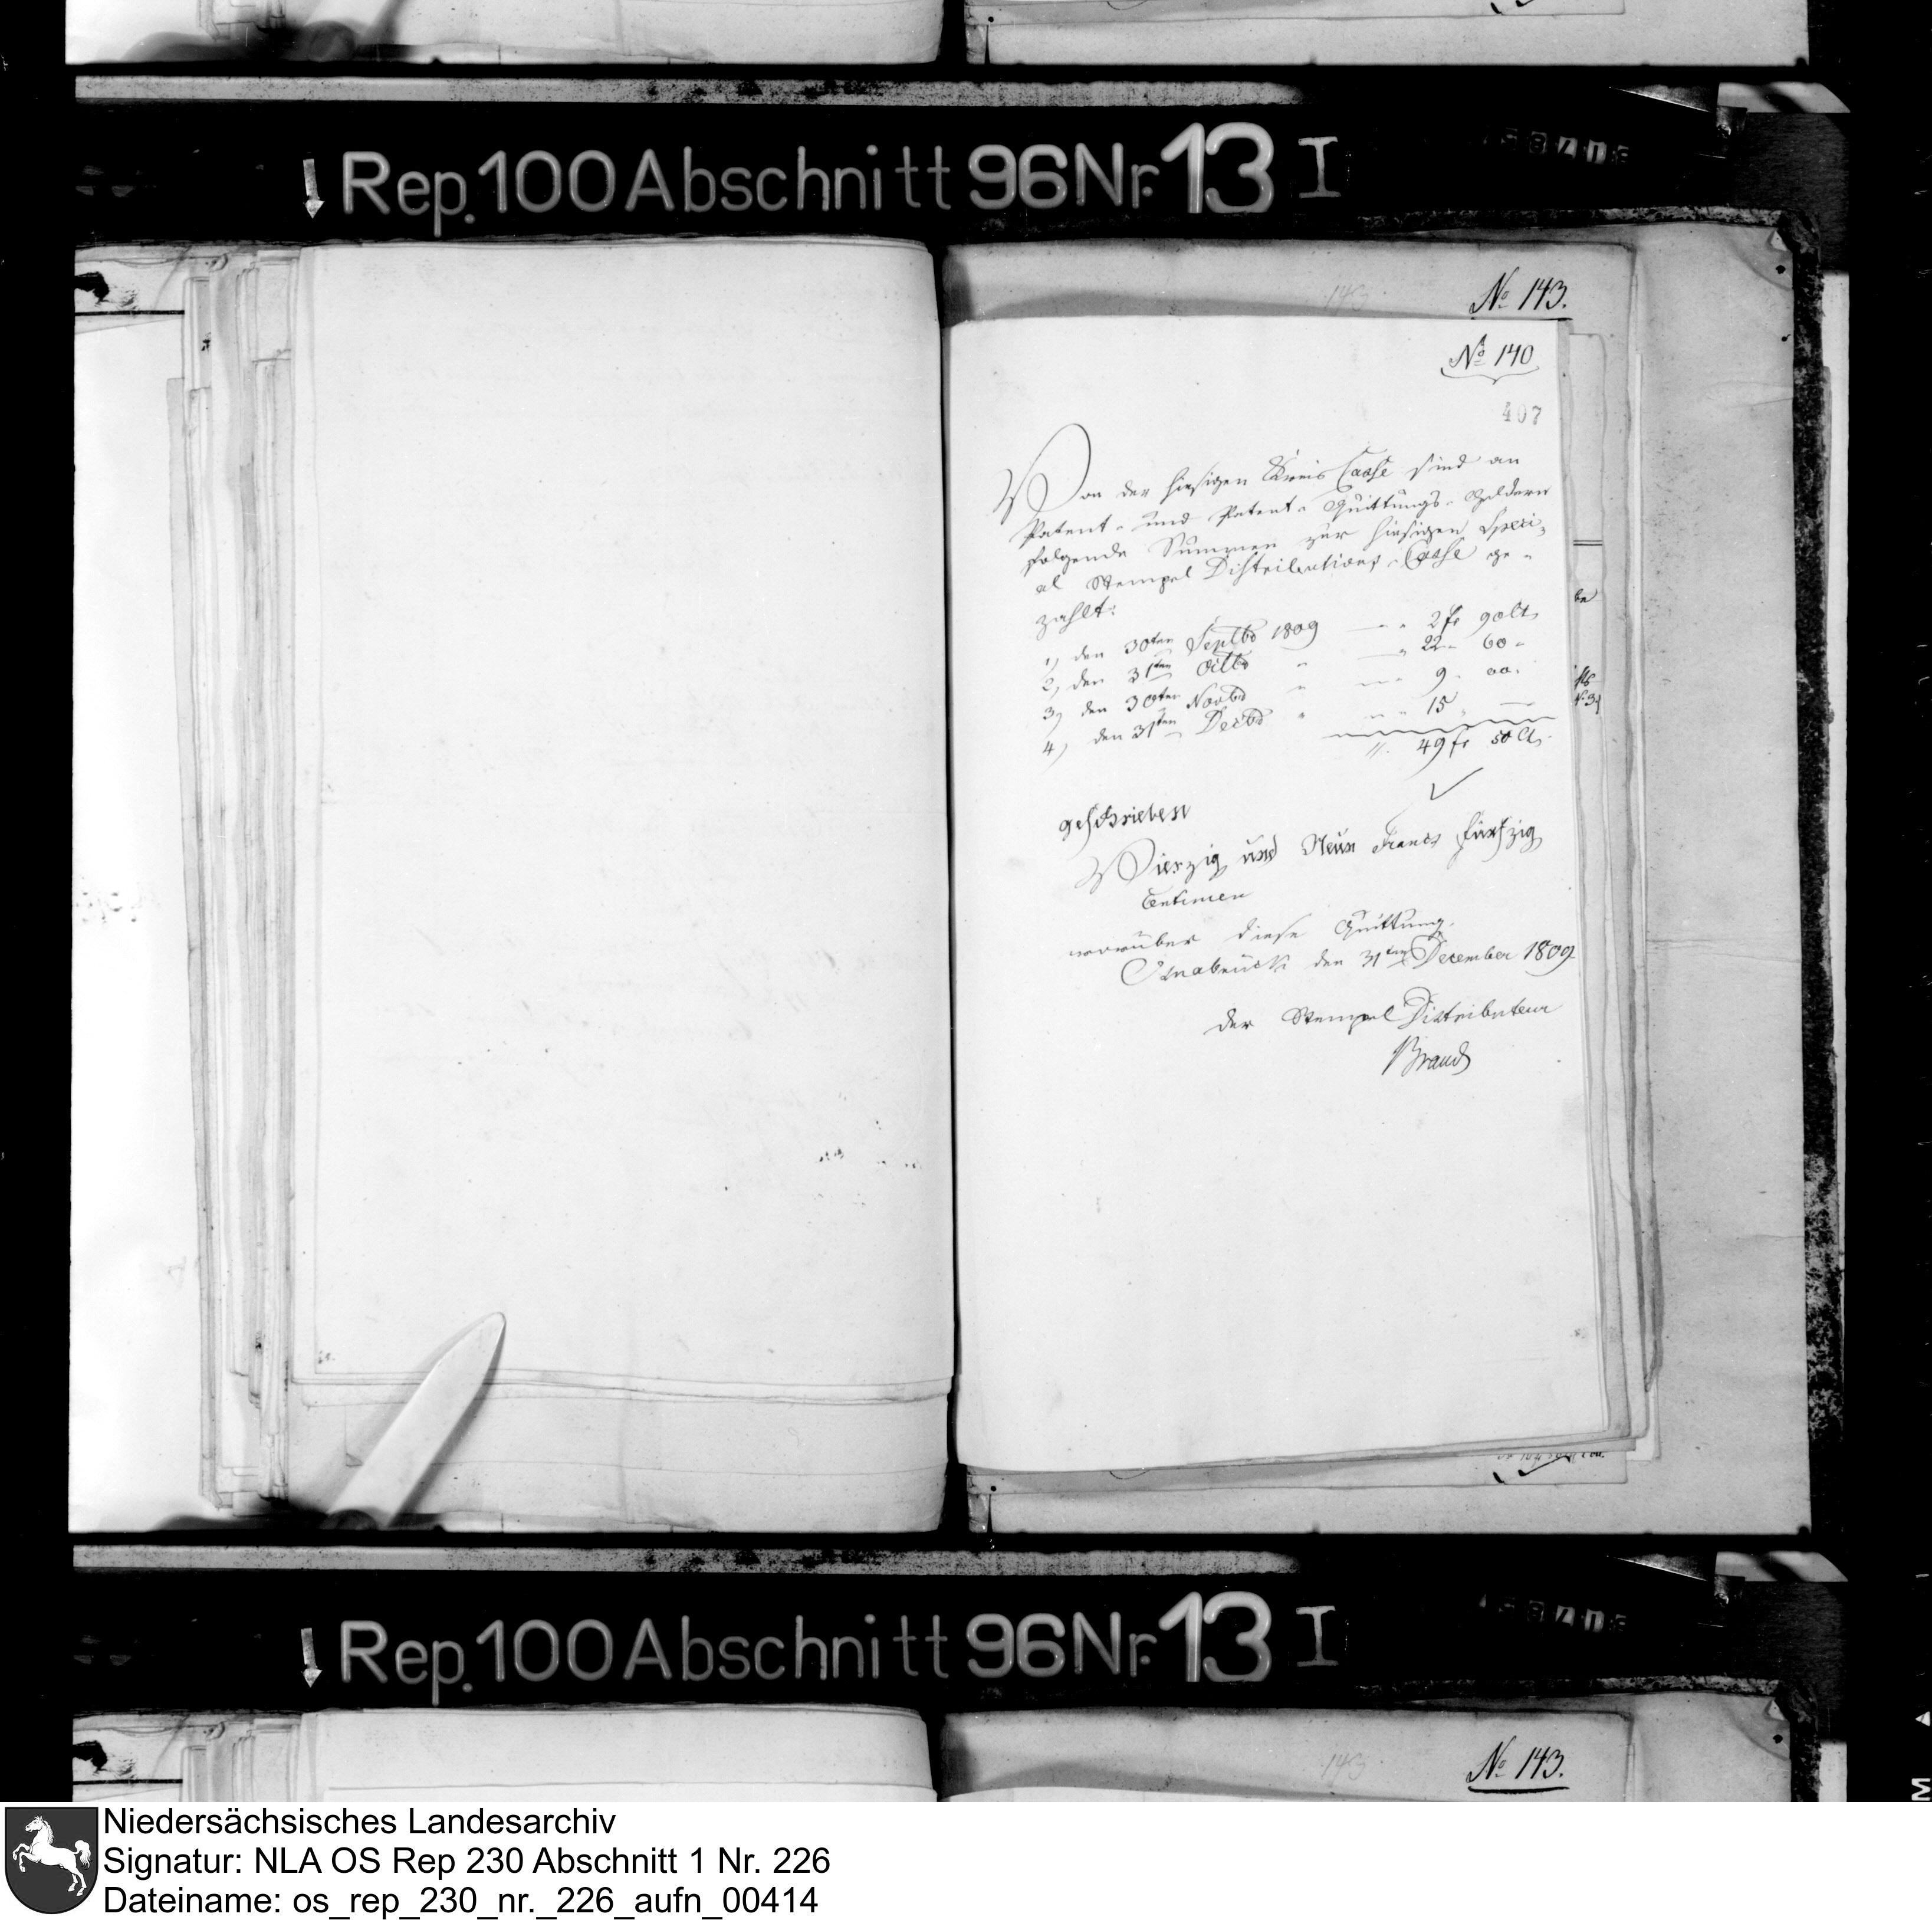 Rep. 100 Abschnitt 96 Nr. 13 I
No 143.
No 140
407
Von der hiesigen Kreis Casse sind an
Patent- und Patent-Quittungs-Geldern
folgende Summen zur hiesigen Speci-
al Stempel Distributions-Casse ge-
zahlt:
1) den 30ten Septbr 1809 — „ 2 fr 90 Cts
2) den 31ten Octbr „ — „ 22 „ 60 „
3) den 30ten Novbr „ — „ 9 „ 00 „
4) den 31ten Decbr „ „ 15 „ —
49 fr 50 Cts
geschrieben
Vierzig und Neun Francs fünfzig
Centimen
worüber diese Quittung.
Osnabrück den 31ten December 1809
Der Stempel Distributeur
Brand
Rep. 100 Abschnitt 96 Nr. 13 I
143
No 143.
M
Niedersächsisches Landesarchiv
Signatur: NLA OS Rep 230 Abschnitt 1 Nr. 226
Dateiname: os_rep_230_nr._226_aufn_00414